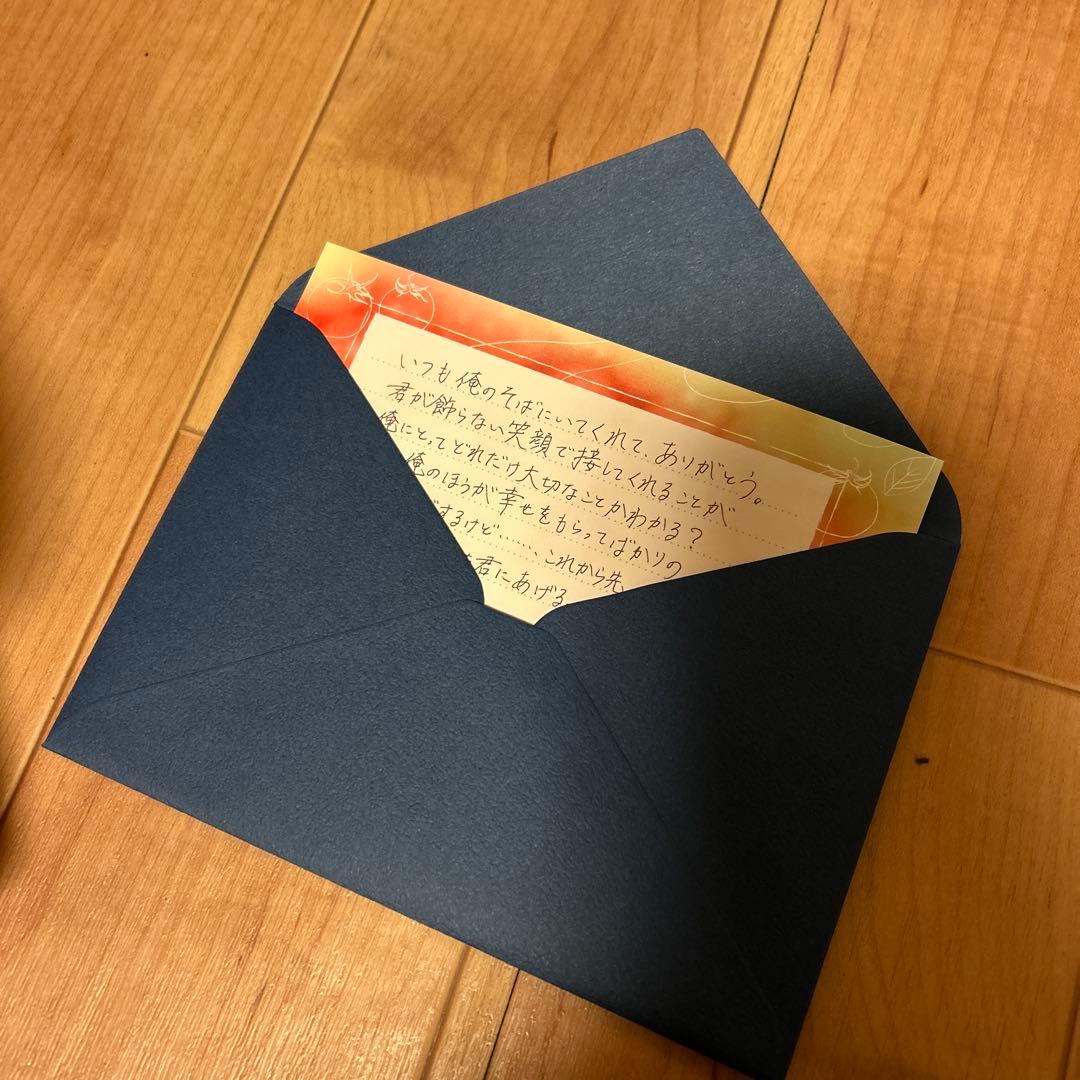 いつも俺のそばにいてくれて、ありがとう。
君が飾らない笑顔で接してくれることが
俺にとってどれだけ大切なことかわかる?
俺のほうが幸せをもらってばかりの
するけど……、これから先、
君にあげる